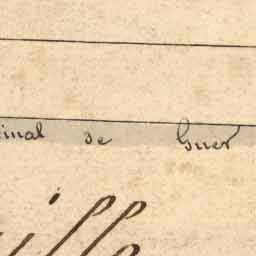 inal de Guer
ille